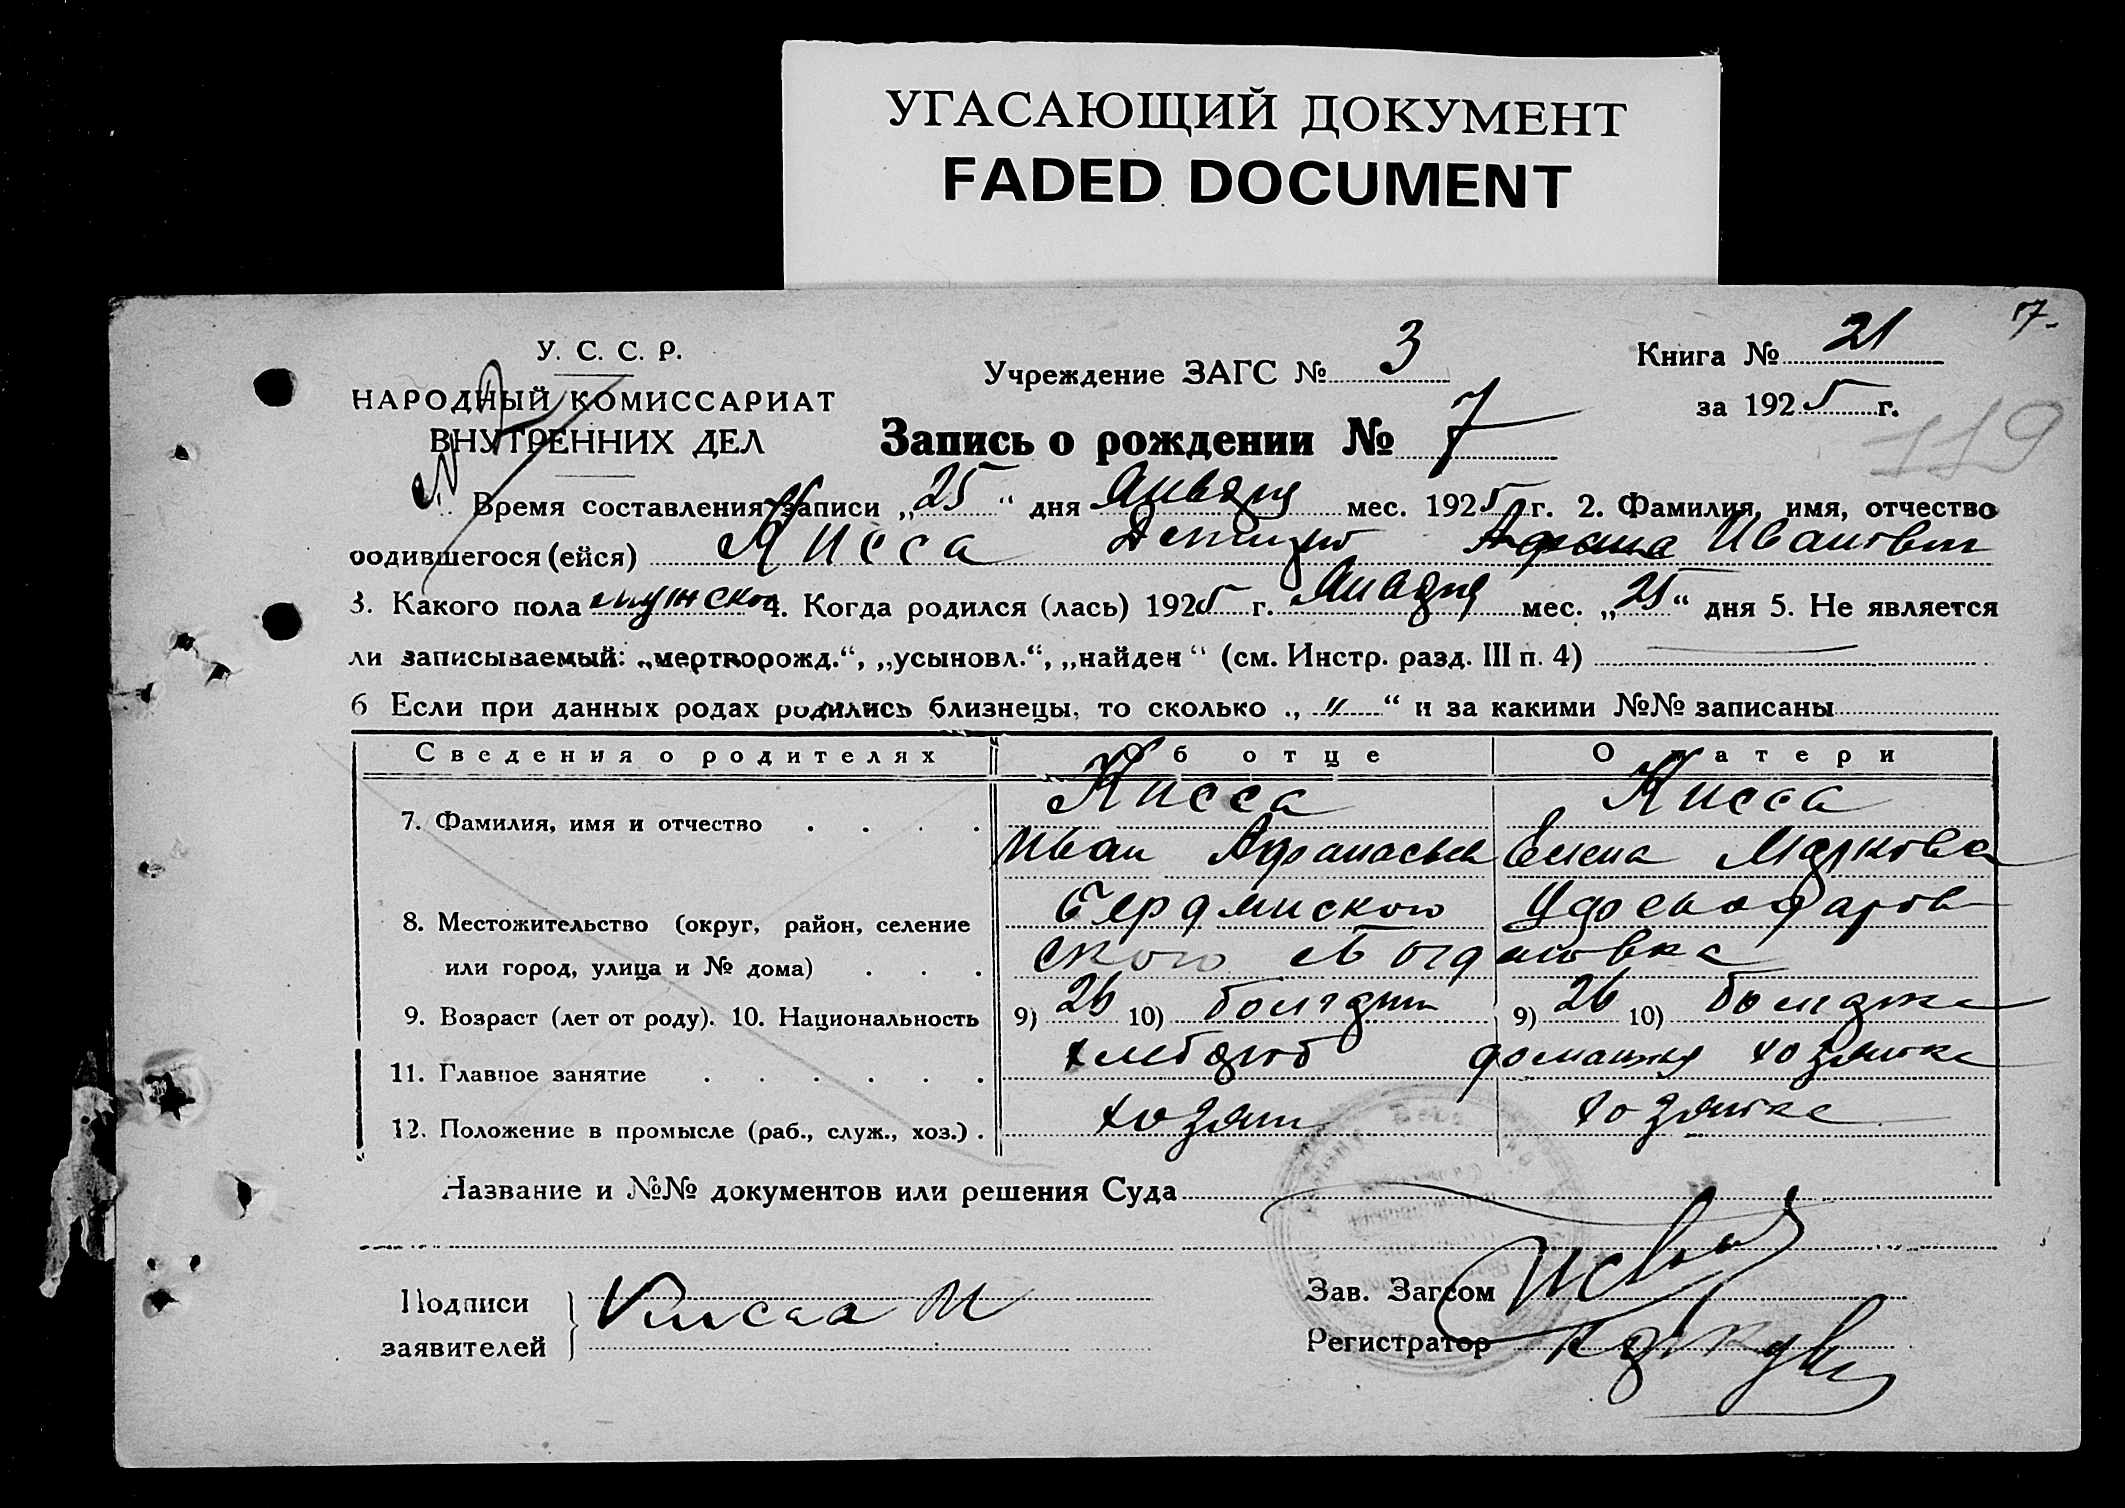 УГАСАЮЩИЙ ДОКУМЕНТ
FADED DOCUMENT
7.
У. С. С. Р.
НАРОДНЫЙ КОМИССАРИАТ
ВНУТРЕННИХ ДЕЛ
Учреждение ЗАГС № 3
Книга № 21
за 1925 г.
119
Запись о рождении № 7
Время составления записи „25“ дня Января мес. 1925 г. 2. Фамилия, имя, отчество
родившегося (ейся) Кисса Иванович
3. Какого пола мужского 4. Когда родился (лась) 1925 г. Января мес. „25“ дня 5. Не является
ли записываемый: „мертворожд.“, „усыновл.“, „найден“ (см. Инстр. разд. III п. 4)
6 Если при данных родах родились близнецы, то сколько „ “ и за какими №№ записаны
Сведения о родителях Об отце О матери
7. Фамилия, имя и отчество Кисса Кисса
Иван Афанасьев Елена Маркова
8. Местожительство (округ, район, селение
или город, улица и № дома) ского Богдановка
9. Возраст (лет от роду). 10. Национальность 9) 26 10) болгарин 9) 26 10) болгарка
11. Главное занятие хлебороб домашняя хозяйка
12. Положение в промысле (раб., служ., хоз.) хозяин хозяйка
Название и №№ документов или решения Суда
Подписи
заявителей
Кисса И
Зав. Загсом
Регистратор